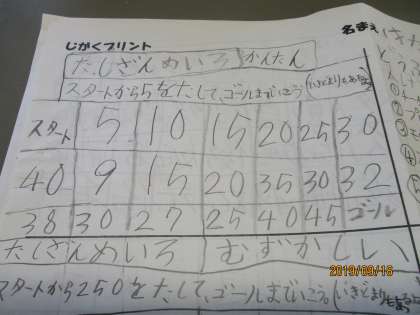 名まえ
じがくプリント
たしざんめいろ かんたん
スタートから5をたして、ゴールまでいこう
スタート 5 10 15 20 25 30
40 9 15 20 35 30 32
38 30 27 25 40 45 ゴール
たしざんめいろ むずかしい
スタートから250をたして、ゴールまでいこう。
2019/09/16